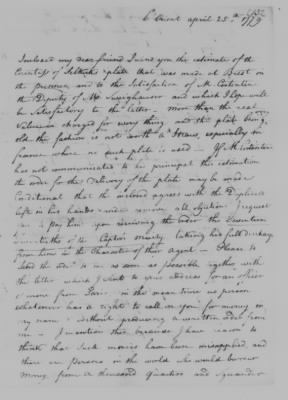 L'Orient april 25th 1779
Inclosed my dear friend I send you the estimate of the
Countess of Selkirks plate that was made at Brest on
the and to the Satisfaction of M.
the Deputy of Mr Swighauser and which I hope will
be Satisfactory to the latter. more than the real
Value is charged for every thing and the plate being
old the fashion is not worth a Sous, especially in
france where no such plate is used — If M.
has not communicated to his principal the estimation
the order for the delivery of the plate may be made
Conditional that the inclosed agrees with the Duplicate
left in his hands all objection. I request
you to pay him upon receiving the order the Seventeen
of the Captors moiety taking his full discharge
from him in the Character of their agent — Please to
Send the order to me as soon as possible together with
the letter which I sent to your address for an officer
from Paris. in the mean time no person
whatsoever has a right to call on you for money on
my name without producing a written order from
me — I mention this because I have reason to
think that Such monies have been misapplied, and
there are persons in the world who would borrow
money from a thousand Quarters and Squander